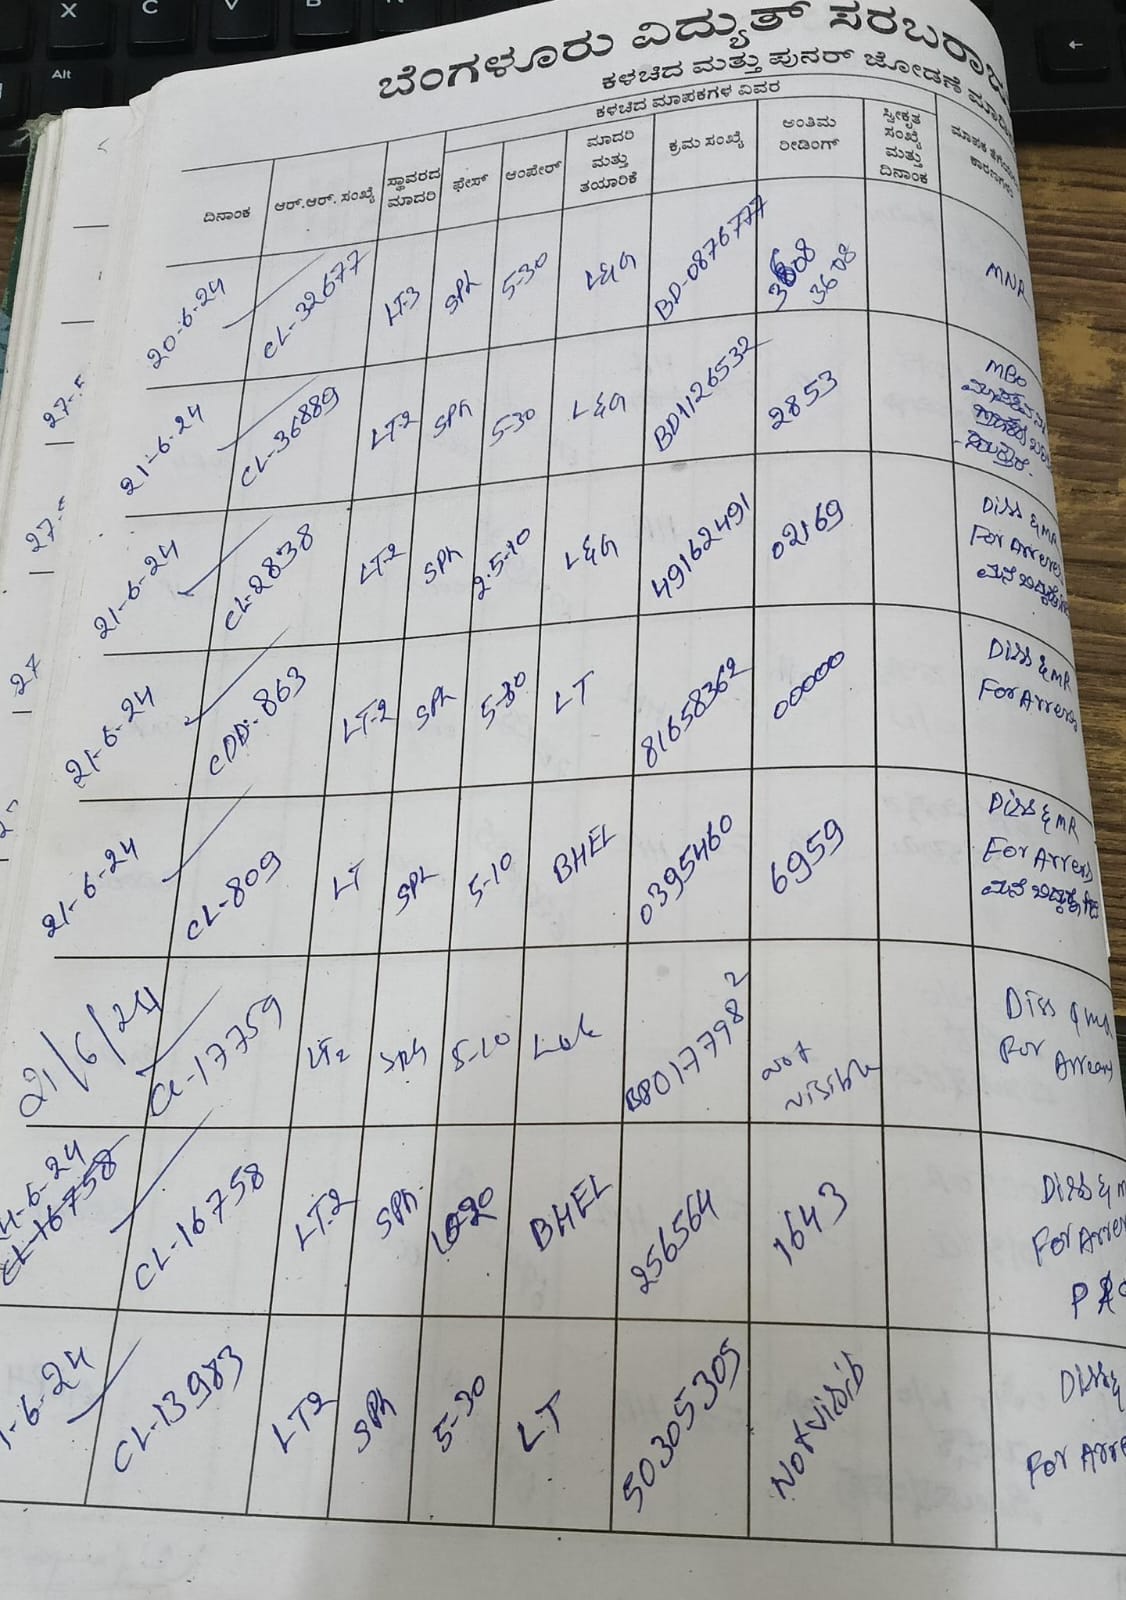 ಬೆಂಗಳೂರು ವಿದ್ಯುತ್ ಸರಬರಾಜು
ಕಳಚಿದ ಮತ್ತು ಪುನರ್ ಜೋಡಣೆ
ಕಳಚಿದ ಮಾಪಕಗಳ ವಿವರ
ದಿನಾಂಕ ಆರ್.ಆರ್. ಸಂಖ್ಯೆ ಸ್ಥಾವರದ ಮಾದರಿ ಫೇಸ್ ಆಂಪೇರ್ ಮಾದರಿ ಮತ್ತು ತಯಾರಿಕೆ ಕ್ರಮ ಸಂಖ್ಯೆ ಅಂತಿಮ ರೀಡಿಂಗ್ ಸ್ವೀಕೃತ ಸಂಖ್ಯೆ ಮತ್ತು ದಿನಾಂಕ ಮಾಪಕ
20-6-24 CL-32677 LT-3 SPh 5-30 L&G BD-0876777 3608 3608 MNR
21-6-24 CL-36889 LT-2 SPh 5-30 L&G BD1126532 2853 MBO
21-6-24 CL-2838 LT-2 SPh 2.5-10 L&G 49162491 02169 Diss & MR
For Arrers
21-6-24 CDD-863 LT-2 SPh 5-30 LT 81658362 00000 Diss & MR
For Arrers
21-6-24 CL-809 LT SPh 5-10 BHEL 0395460 6959 Diss & MR
For Arrers
21/6/24 CL-17759 LT2 SPh 5-10 L&G 80177982 Not visible Diss & MR
For Arrears
CL-16758
CL-16758 LT-2 SPh 10-20 BHEL 256564 1643 Diss &
For
-6-24 CL-13983 LT2 SPh 5-30 LT 50305305 Not visib Diss &
For